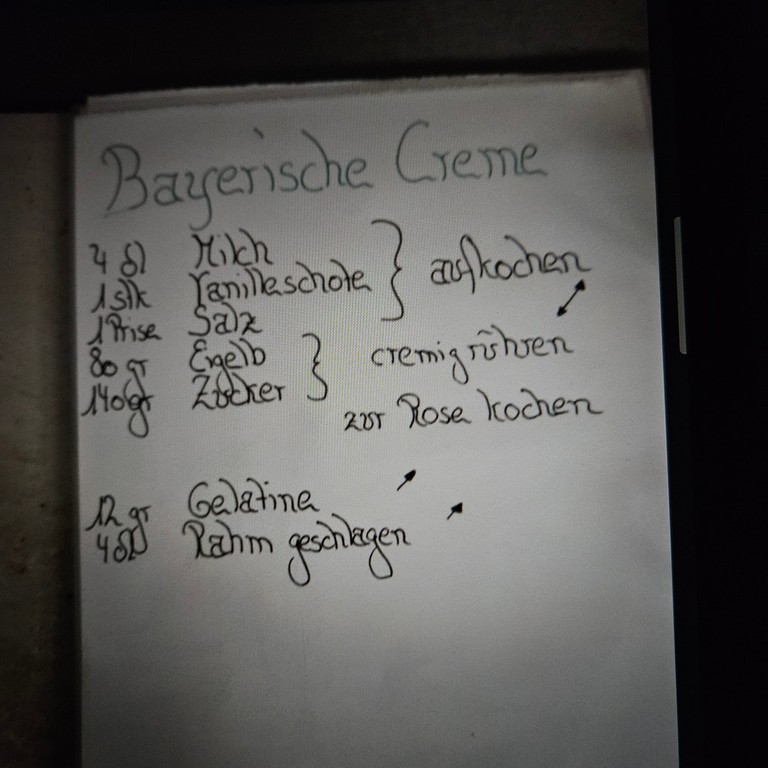 Bayerische Creme
4 dl Milch } aufkochen
1 Stk Vanilleschote
1 Prise Salz
80 gr Eigelb } cremig rühren
140 gr Zucker
zur Rose kochen
12 gr Gelatine
4 dl Rahm geschlagen